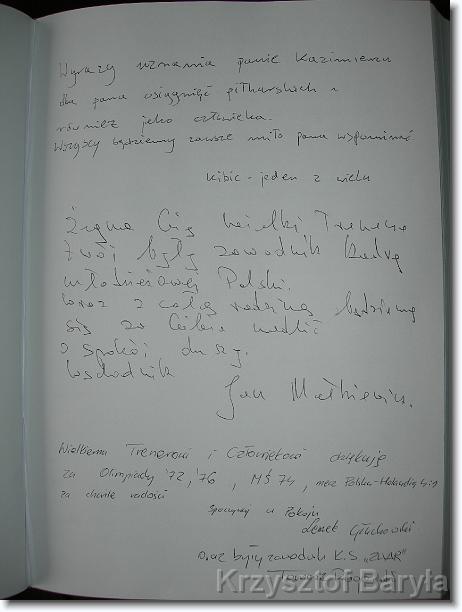 Wyrazy uznania panie Kazimierzu
dla pana osiągnięć piłkarskich i
również jako człowieka.
Wszyscy będziemy zawsze miło pana wspominać
kibic - jeden z wielu
Żegna Cię wielki Trenerze
Twój były zawodnik Kadry
młodzieżowej Polski.
wraz z całą rodziną będziemy
się za Ciebie modlić
o spokój duszy.
Jan Małkiewicz.
Wielkiemu Trenerowi i Człowiekowi dziękuję
za Olimpiady '72, '76, MŚ 74, mecz Polska-Holandia 4:1
za chwile radości
Spoczywaj w Pokoju
oraz były zawodnik K.S. „ZNICZ”
Krzysztof Baryła